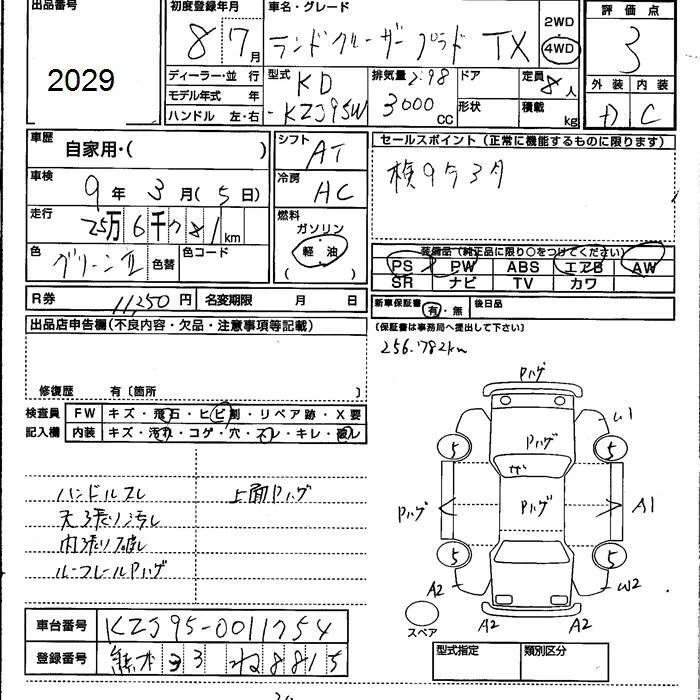 出品番号
2029
初度登録年月
8 7月
車名・グレード
ランドクルーザープラド TX
2WD
4WD
評価点
3
外装 内装
D C
ディーラー・並 行
モデル年式 年
ハンドル 左・右
型式 KD
-KZJ95W
排気量 2.98
3000 CC
ドア
形状
定員 8人
積載 kg
車歴
自家用・( )
車検
9年 3月(5日)
走行
25万6千781km
色
グリーンⅡ
色替
色コード
シフト
AT
冷房
AC
燃料
ガソリン
軽油
( )
セールスポイント(正常に機能するものに限ります)
検9年3月
装備品(純正品に限り○をつけてください)
PS PW ABS エアB AW
SR ナビ TV カワ
R券 11,250円 名変期限 月 日
新車保証書 有・無 後日品
(保証書は事務局へ提出して下さい)
出品店申告欄(不良内容・欠品・注意事項等記載)
256.782km
修復歴 有〔箇所 〕
検査員
記入欄
FW キズ・飛石・ヒビ割・リペア跡・X要
内装 キズ・汚れ・コゲ・穴・スレ・キレ・破れ
ハンドルスレ 上面Pハゲ
天張り汚れ
内張り破れ
ルーフレールPハゲ
Pハゲ
Pハゲ
Pハゲ
Pハゲ
5 5
A1
5 5
A2 W2
A2 A2
スペア
車台番号 KZJ95-0011754
登録番号 熊本 33 ね 8815
型式指定 類別区分